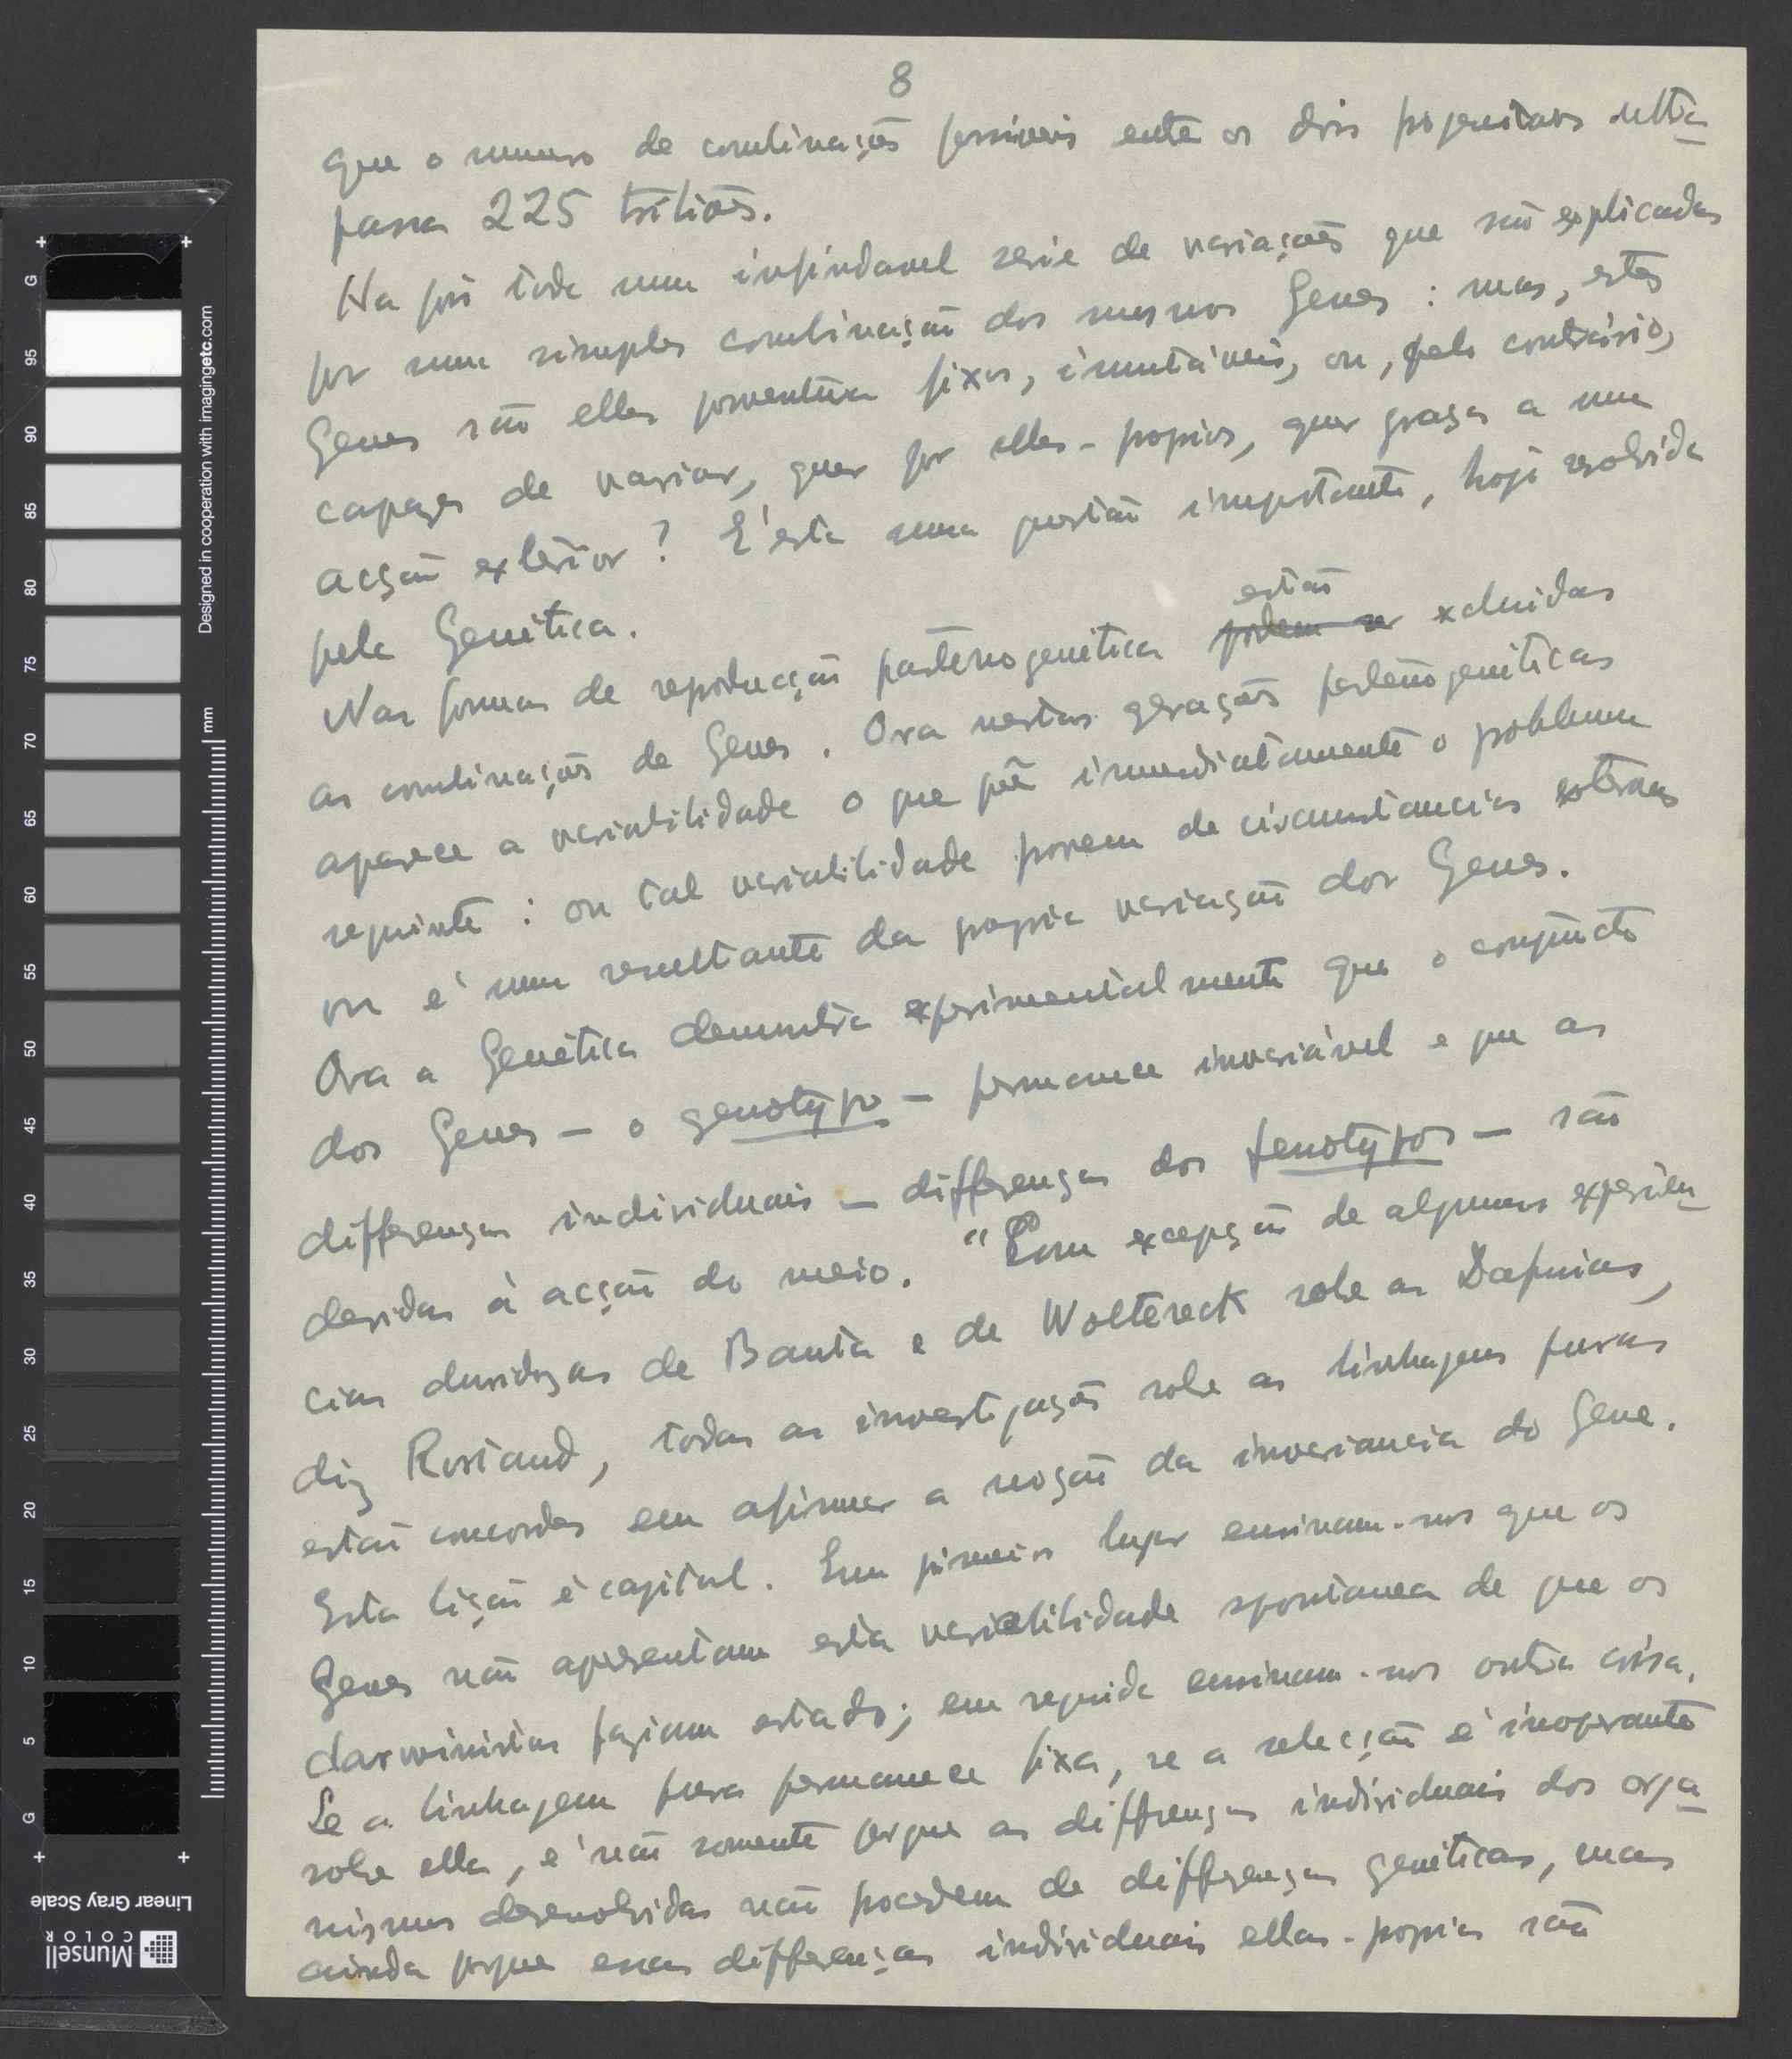 8
que o numero de combinações possiveis entre os dois progenitores ultra
passa 225 triliões.
Ha pois toda uma infindavel serie de variações que são explicadas
por uma simples combinação dos mesmos Genes : mas, estes
Genes são elles porventura fixos, imutáveis, ou, pelo contrário,
capazes de variar, quer por elles-proprios, quer graças a uma
acção exterior ? E' esta uma questão importante, hoje resolvida
pela Genética.
Nas formas de reprodução partenogenetica podem ser excluidas
estão
as combinações de Genes. Ora nestas gerações partenogeneticas
aparece a variabilidade o que põe immediatamente o problema
seguinte : ou tal variabilidade provem de circumstancias externas
ou é uma resultante da propria variação dos Genes.
Ora a Genética demonstra experimentalmente que o conjuncto
dos Genes - o genotypo - permanece invariável e que as
differenças individuais - differenças dos fenotypos - são
devidas à acção do meio. "Com excepção de algumas experien
cias duvidosas de Banta e de Woltereck sobre as Dafnias,
diz Rostand, todas as investigações sobre as linhagens puras
estão concordes em afirmar a noção da invariancia do Gene.
Esta lição é capital. Em primeiro lugar ensinam-nos que os
Genes não apresentam esta variabilidade spontanea de que os
darwinistas faziam estado; em seguida ensinam-nos outra coisa.
Se a linhagem pura permanece fixa, se a selecção é inoperante
sobre ella, é não somente porque as differenças individuais dos orga
nismos desenvolvidos não procedem de differenças genéticas, mas
ainda porque essas differenças individuais ellas-proprias são
Designed in cooperation with imagingetc.com
mm
G
95
90
85
80
75
70
65
60
55
50
45
40
35
30
25
20
15
10
5
G
Linear Gray Scale
Munsell
COLOR